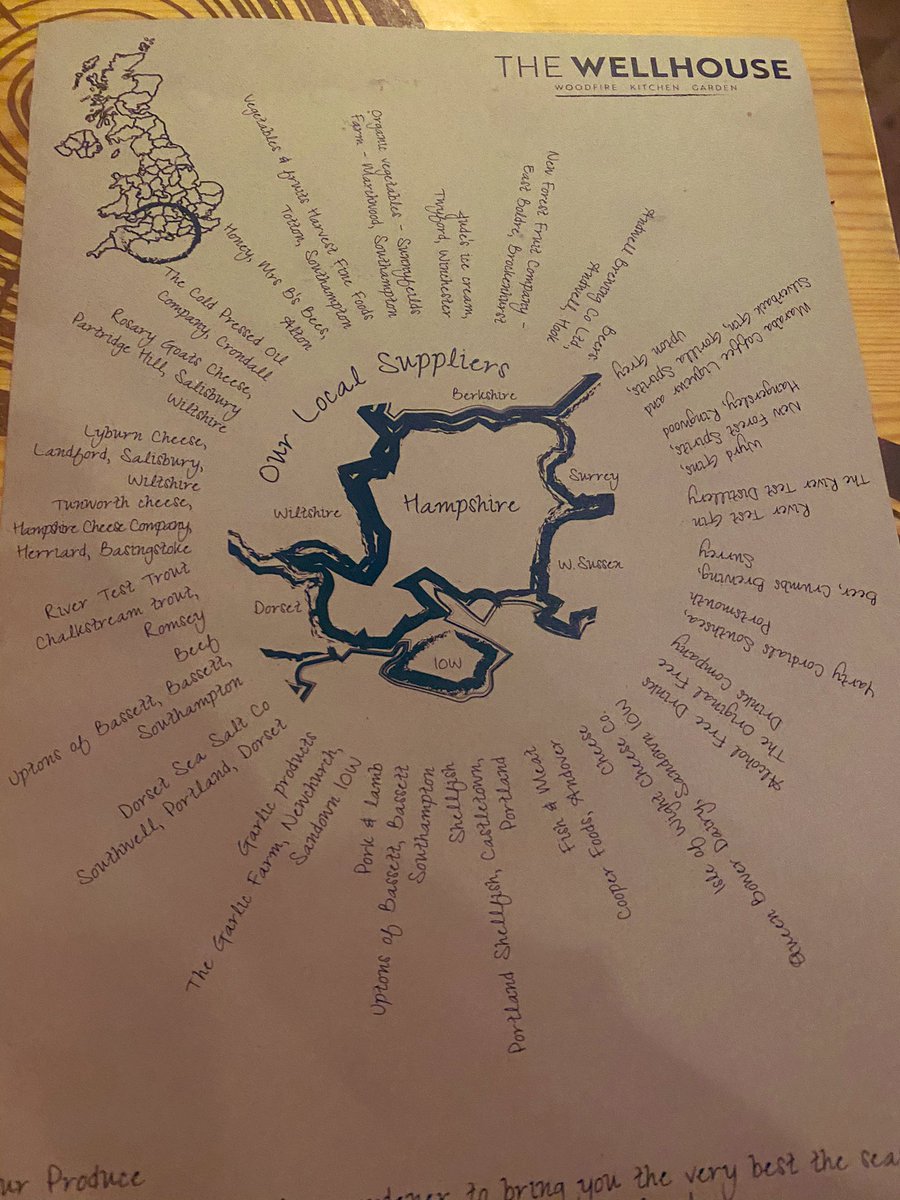 THE WELLHOUSE
WOODFIRE KITCHEN GARDEN
Our Local Suppliers
Berkshire
Surrey
Hampshire
Wiltshire
W. Sussex
Dorset
IOW
Vegetables & fruits Harvest Fine Foods
Totton, Southampton
Organic vegetables - Sunnyfields
Farm - Marchwood, Southampton
Jude's ice cream,
Twyford, Winchester
New Forest Fruit Company -
East Boldre, Brockenhurst
Beers
Andwell Brewing Co Ltd,
Andwell, Hook
Waraba Coffee Liqueur and
Silverback Gin, Gorilla Spirits,
Upton Grey
Wyrd Gins,
New Forest Spirits,
Hangersley, Ringwood
River Test Gin
The River Test Distillery
Beer, Crumbs Brewing,
Surrey
Yarty Cordials Southsea,
Portsmouth
Alcohol Free Drinks
The Original Free
Drinks Company
Cheese
Isle of Wight Cheese Co.
Queen Bower Dairy, Sandown IOW
Fish & Meat
Cooper Foods, Andover
Shellfish
Portland Shellfish, Castletown,
Portland
Pork & lamb
Uptons of Bassett, Bassett
Southampton
Garlic products
The Garlic Farm, Newchurch,
Sandown IOW
Dorset Sea Salt Co
Southwell, Portland, Dorset
Beef
Uptons of Bassett, Bassett,
Southampton
River Test Trout
Chalkstream trout,
Romsey
Tunworth cheese,
Hampshire Cheese Company,
Herriard, Basingstoke
Lyburn Cheese,
Landford, Salisbury,
Wiltshire
Rosary Goats Cheese,
Partridge Hill, Salisbury
Wiltshire
The Cold Pressed Oil
Company, Crondall
Honey, Mrs B's Bees,
Alton
ur Produce
to bring you the very best the sea